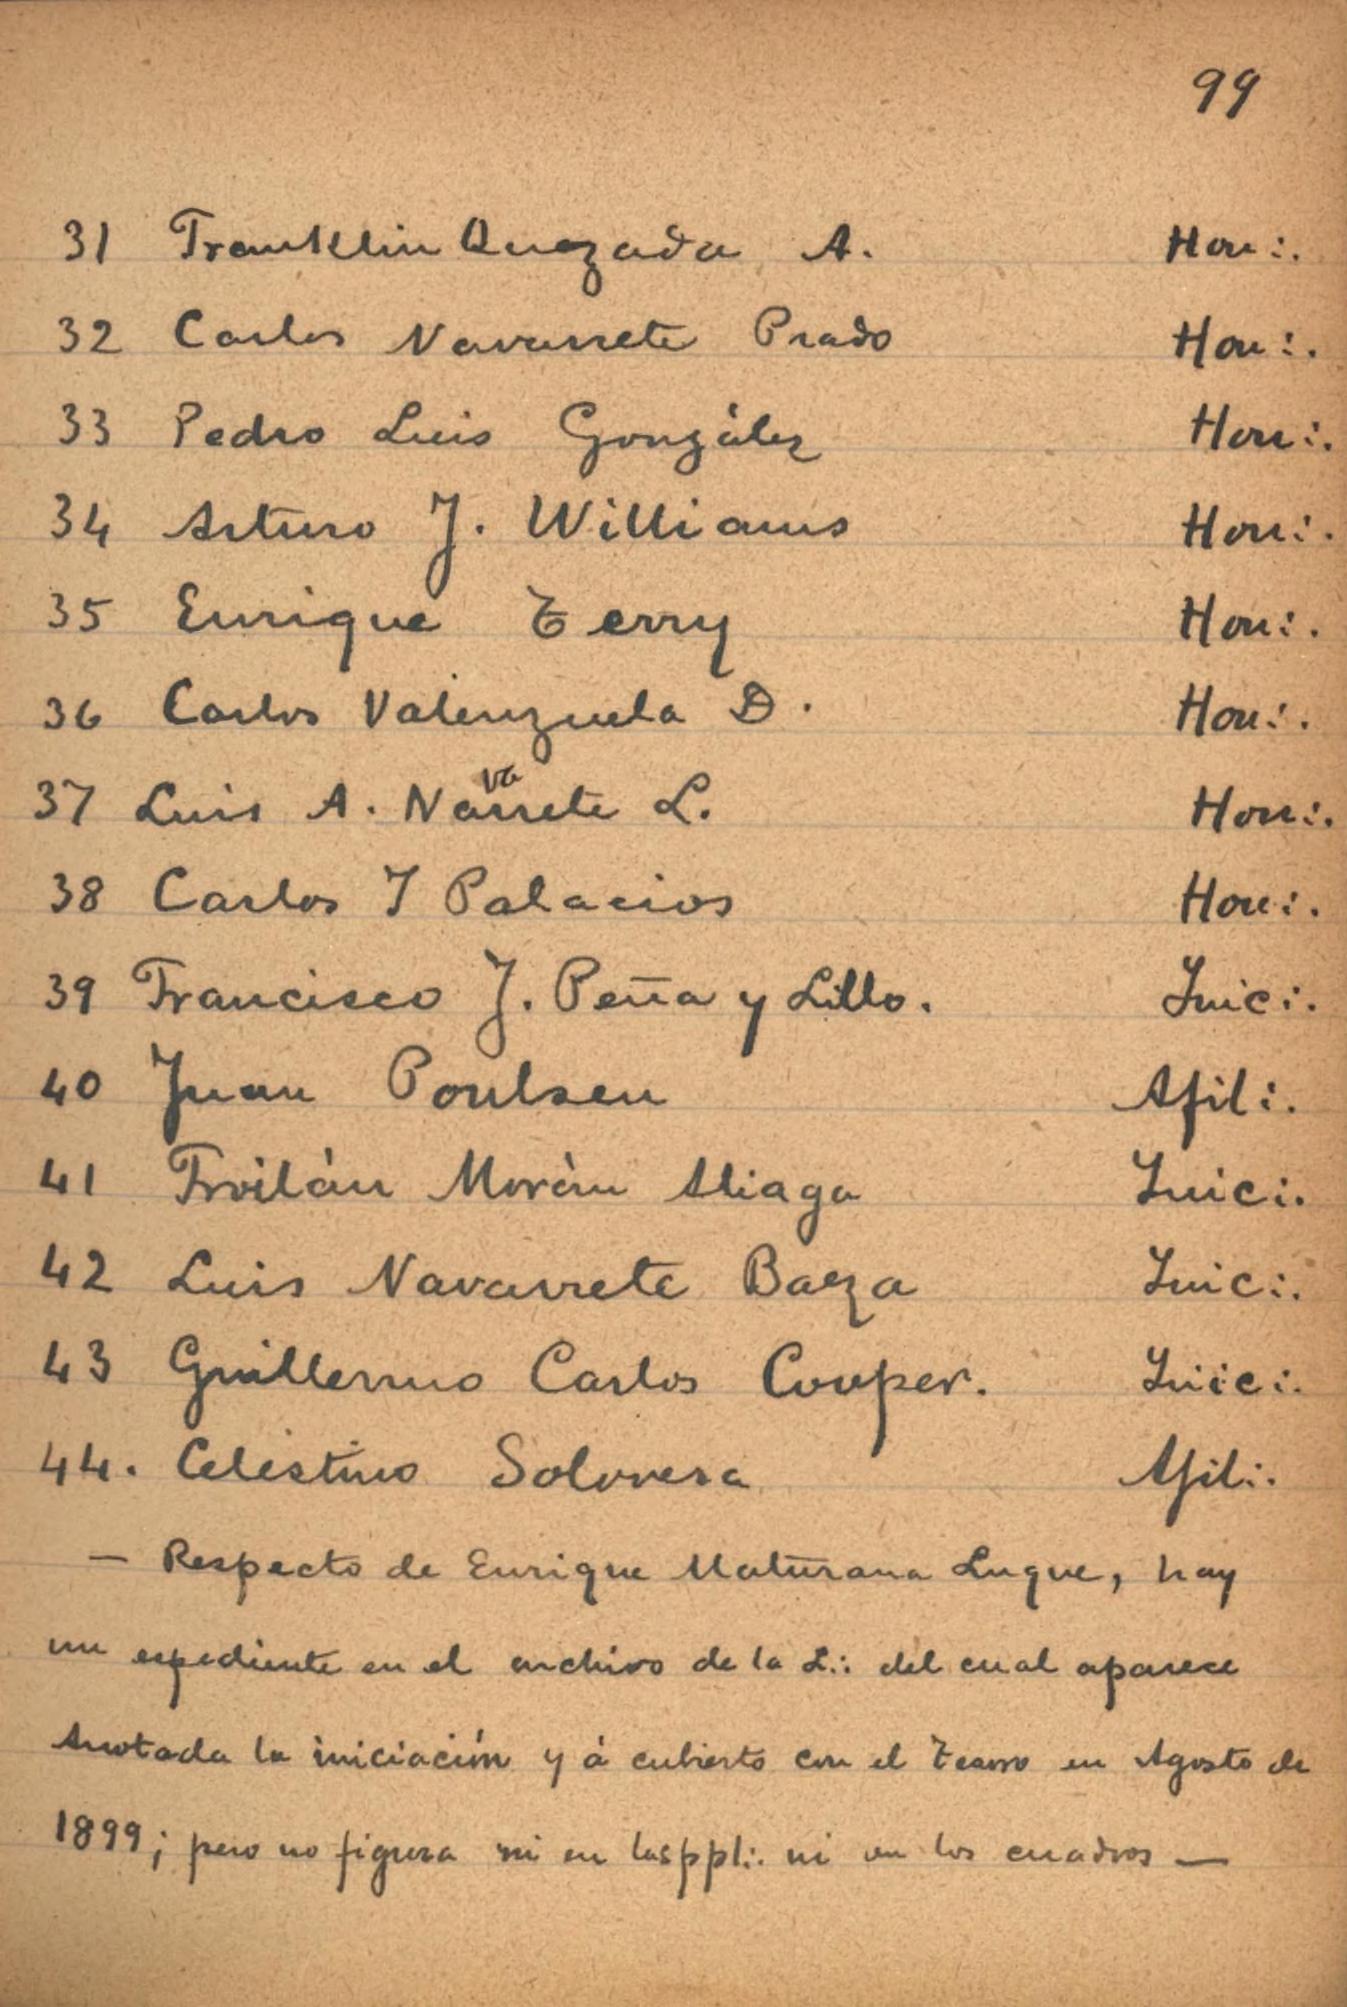 99
31 Franklin Quezada A. Hon∴
32 Carlos Navarrete Prado Hon∴
33 Pedro Luis González Hon∴
34 Arturo J. Williams Hon∴
35 Enrique Terry Hon∴
36 Carlos Valenzuela D. Hon∴
37 Luis A. Navarrete L. Hon∴
38 Carlos T Palacios Hon∴
39 Francisco J. Peña y Lillo. Inic∴
40 Juan Poulsen Afil∴
41 Froilán Morán Aliaga Inic∴
42 Luis Navarrete Baeza Inic∴
43 Guillermo Carlos Couper. Inic∴
44. Celestino Solovera Afil∴
— Respecto de Enrique Maturana Luque, hay
un espediente en el archivo de la L∴ del cual aparece
anotada la iniciación y á cubierto con el Tesoro en Agosto de
1899; pero no figura ni en las ppl∴ ni en los cuadros —